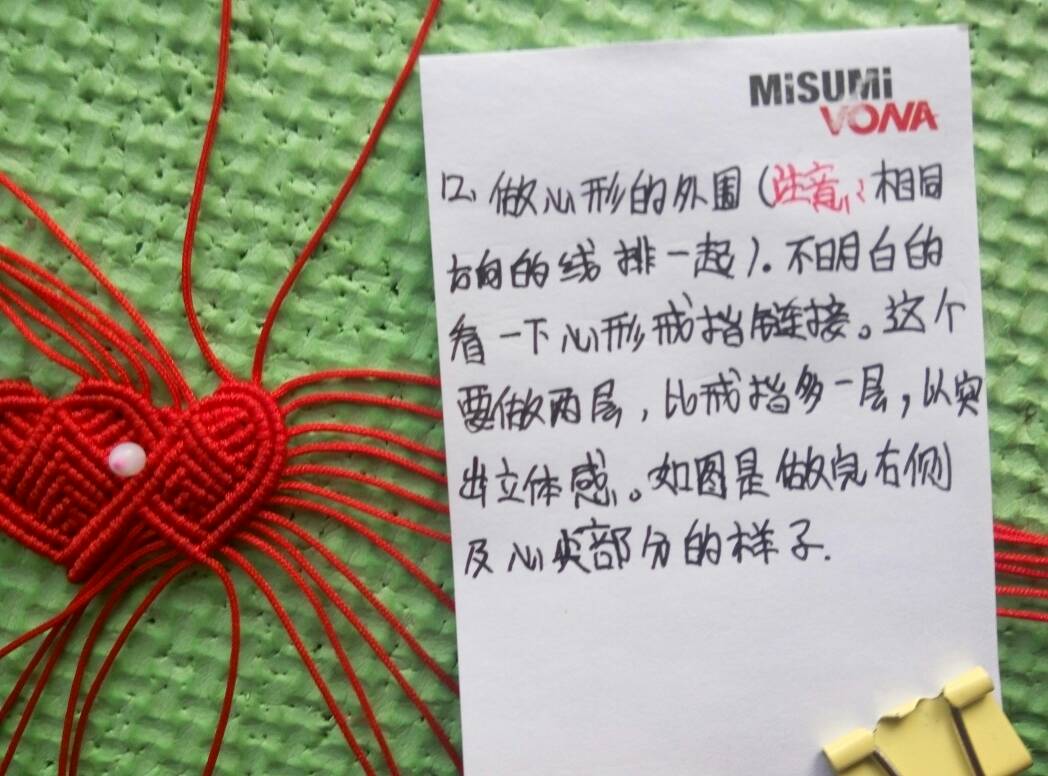 MiSUMi
VONA
12、做心形的外围(注意:相同
方向的线排一起)。不明白的
看一下心形戒指链接。这个
要做两层,比戒指多一层,以突
出立体感。如图是做完右侧
及心尖部分的样子.